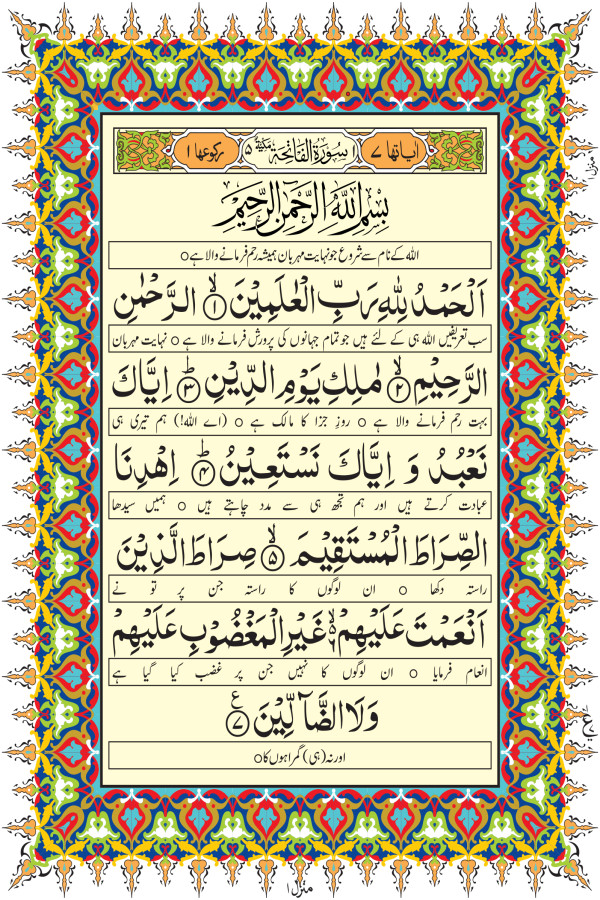 اٰیاتھا ۷ ۱ سُوْرَۃُ الْفَاتِحَۃِ مَكِّیَّۃٌ ۵ رکوعھا ۱
بِسْمِ اللّٰهِ الرَّحْمٰنِ الرَّحِیْمِ
اللہ کے نام سے شروع جو نہایت مہربان ہمیشہ رحم فرمانے والا ہے ○
اَلْحَمْدُ لِلّٰهِ رَبِّ الْعٰلَمِیْنَ ۙ﴿۱﴾ الرَّحْمٰنِ
سب تعریفیں اللہ ہی کے لئے ہیں جو تمام جہانوں کی پرورش فرمانے والا ہے ○ نہایت مہربان
الرَّحِیْمِ ۙ﴿۲﴾ مٰلِكِ یَوْمِ الدِّیْنِ ؕ﴿۳﴾ اِیَّاكَ
بہت رحم فرمانے والا ہے ○ روزِ جزا کا مالک ہے ○ (اے اللہ!) ہم تیری ہی
نَعْبُدُ وَ اِیَّاكَ نَسْتَعِیْنُ ؕ﴿۴﴾ اِهْدِنَا
عبادت کرتے ہیں اور ہم تجھ ہی سے مدد چاہتے ہیں ○ ہمیں سیدھا
الصِّرَاطَ الْمُسْتَقِیْمَ ۙ﴿۵﴾ صِرَاطَ الَّذِیْنَ
راستہ دکھا ○ ان لوگوں کا راستہ جن پر تو نے
اَنْعَمْتَ عَلَیْهِمْ ۙ۬﴿۶﴾ غَیْرِ الْمَغْضُوْبِ عَلَیْهِمْ
انعام فرمایا ○ ان لوگوں کا نہیں جن پر غضب کیا گیا ہے
وَلَا الضَّآلِّیْنَ ﴿۷﴾ ع
اور نہ (ہی) گمراہوں کا ○
منزل ۱
ع
منزل ۱